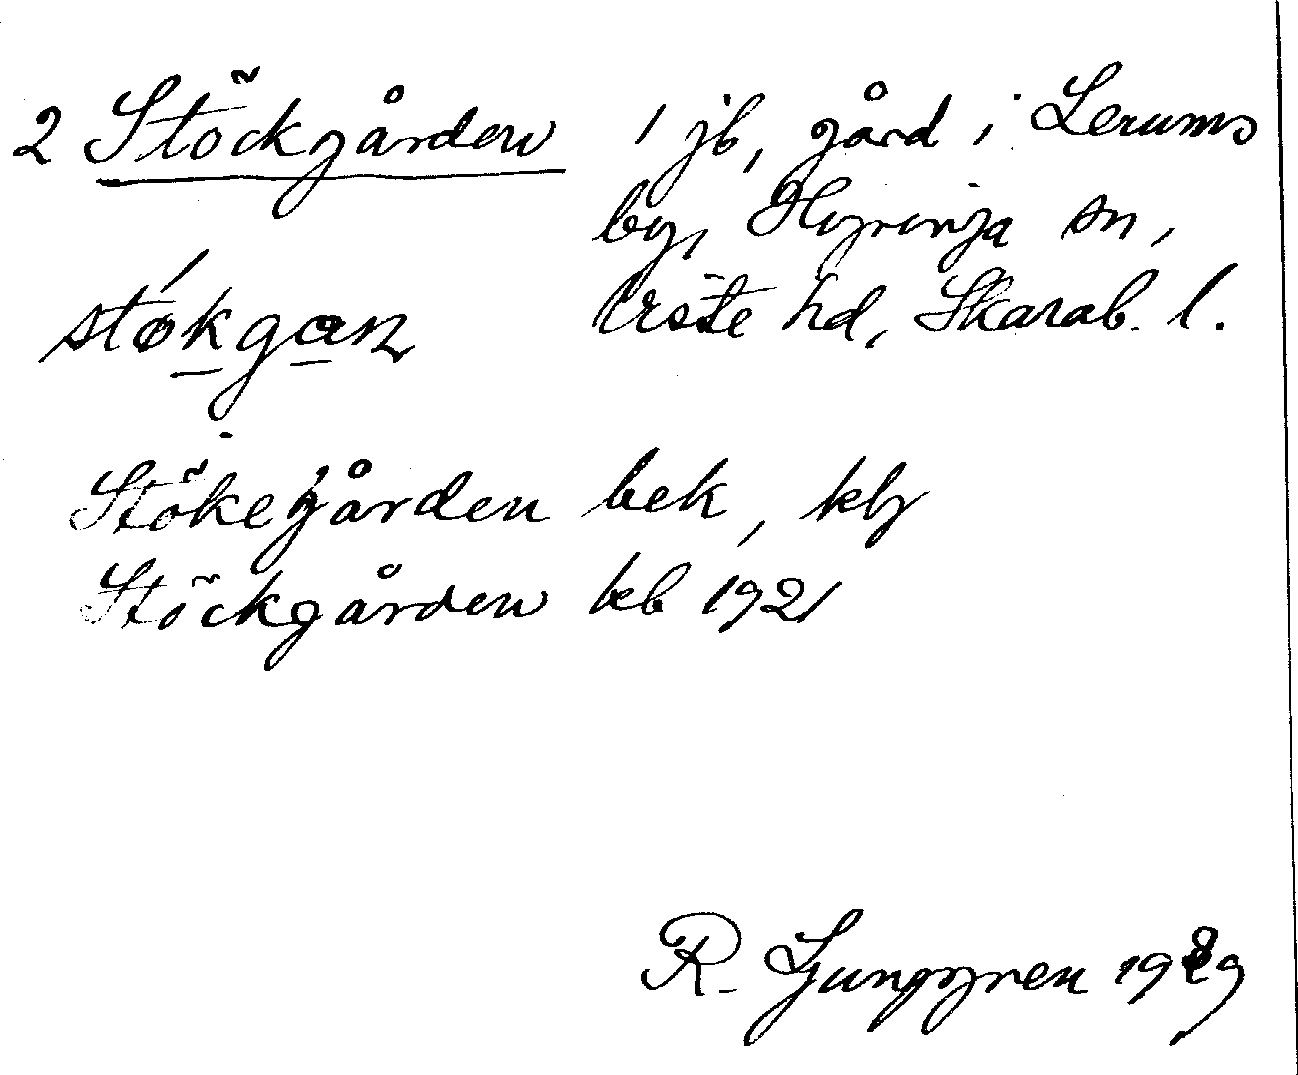 2 Stöckgården 1 jb, gård i Lerums
by, Hyringa sn,
Viste hd, Skarab. l.
støkgan
Stökegården bek, kbg
Stöckgården kb 1921
R. Ljunggren 1929